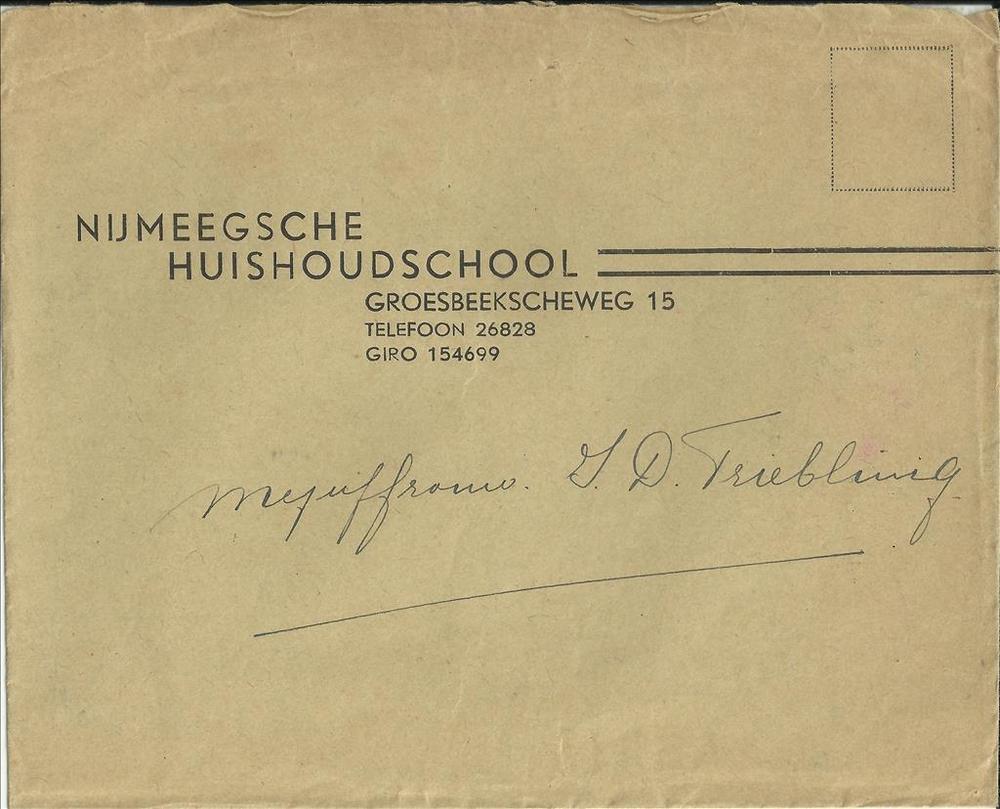 NIJMEEGSCHE
HUISHOUDSCHOOL
GROESBEEKSCHEWEG 15
TELEFOON 26828
GIRO 154699
Mejuffrouw. J. D. Triebling